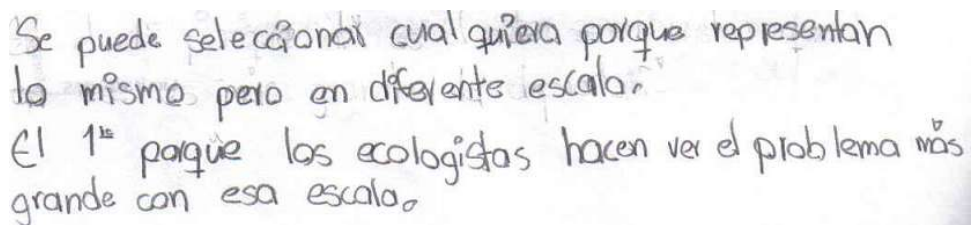 Se puede seleccionar cualquiera porque representan
lo mismo pero en diferente escala.
El 1º porque los ecologistas hacen ver el problema más
grande con esa escala.